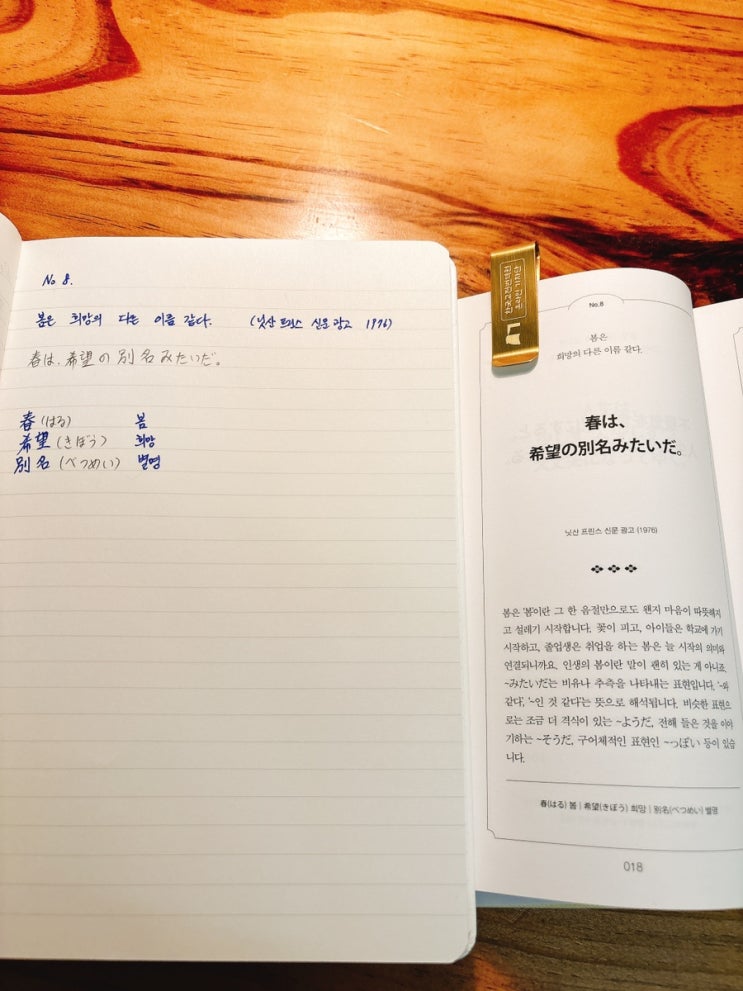 No 8.
봄은 희망의 다른 이름 같다. (닛산 프린스 신문 광고 1976)
春は、希望の別名みたいだ。
春(はる) 봄
希望(きぼう) 희망
別名(べつめい) 별명
No.8
봄은
희망의 다른 이름 같다.
春は、
希望の別名みたいだ。
닛산 프린스 신문 광고 (1976)
봄은 '봄'이란 그 한 음절만으로도 왠지 마음이 따뜻해지
고 설레기 시작합니다. 꽃이 피고, 아이들은 학교에 가기
시작하고, 졸업생은 취업을 하는 봄은 늘 시작의 의미와
연결되니까요. 인생의 봄이란 말이 괜히 있는 게 아니죠.
~みたいだ는 비유나 추측을 나타내는 표현입니다. '~와
같다', '~인 것 같다'는 뜻으로 해석됩니다. 비슷한 표현으
로는 조금 더 격식이 있는 ~ようだ, 전해 들은 것을 이야
기하는 ~そうだ, 구어체적인 표현인 ~っぽい 등이 있습
니다.
春(はる) 봄 | 希望(きぼう) 희망 | 別名(べつめい) 별명
018